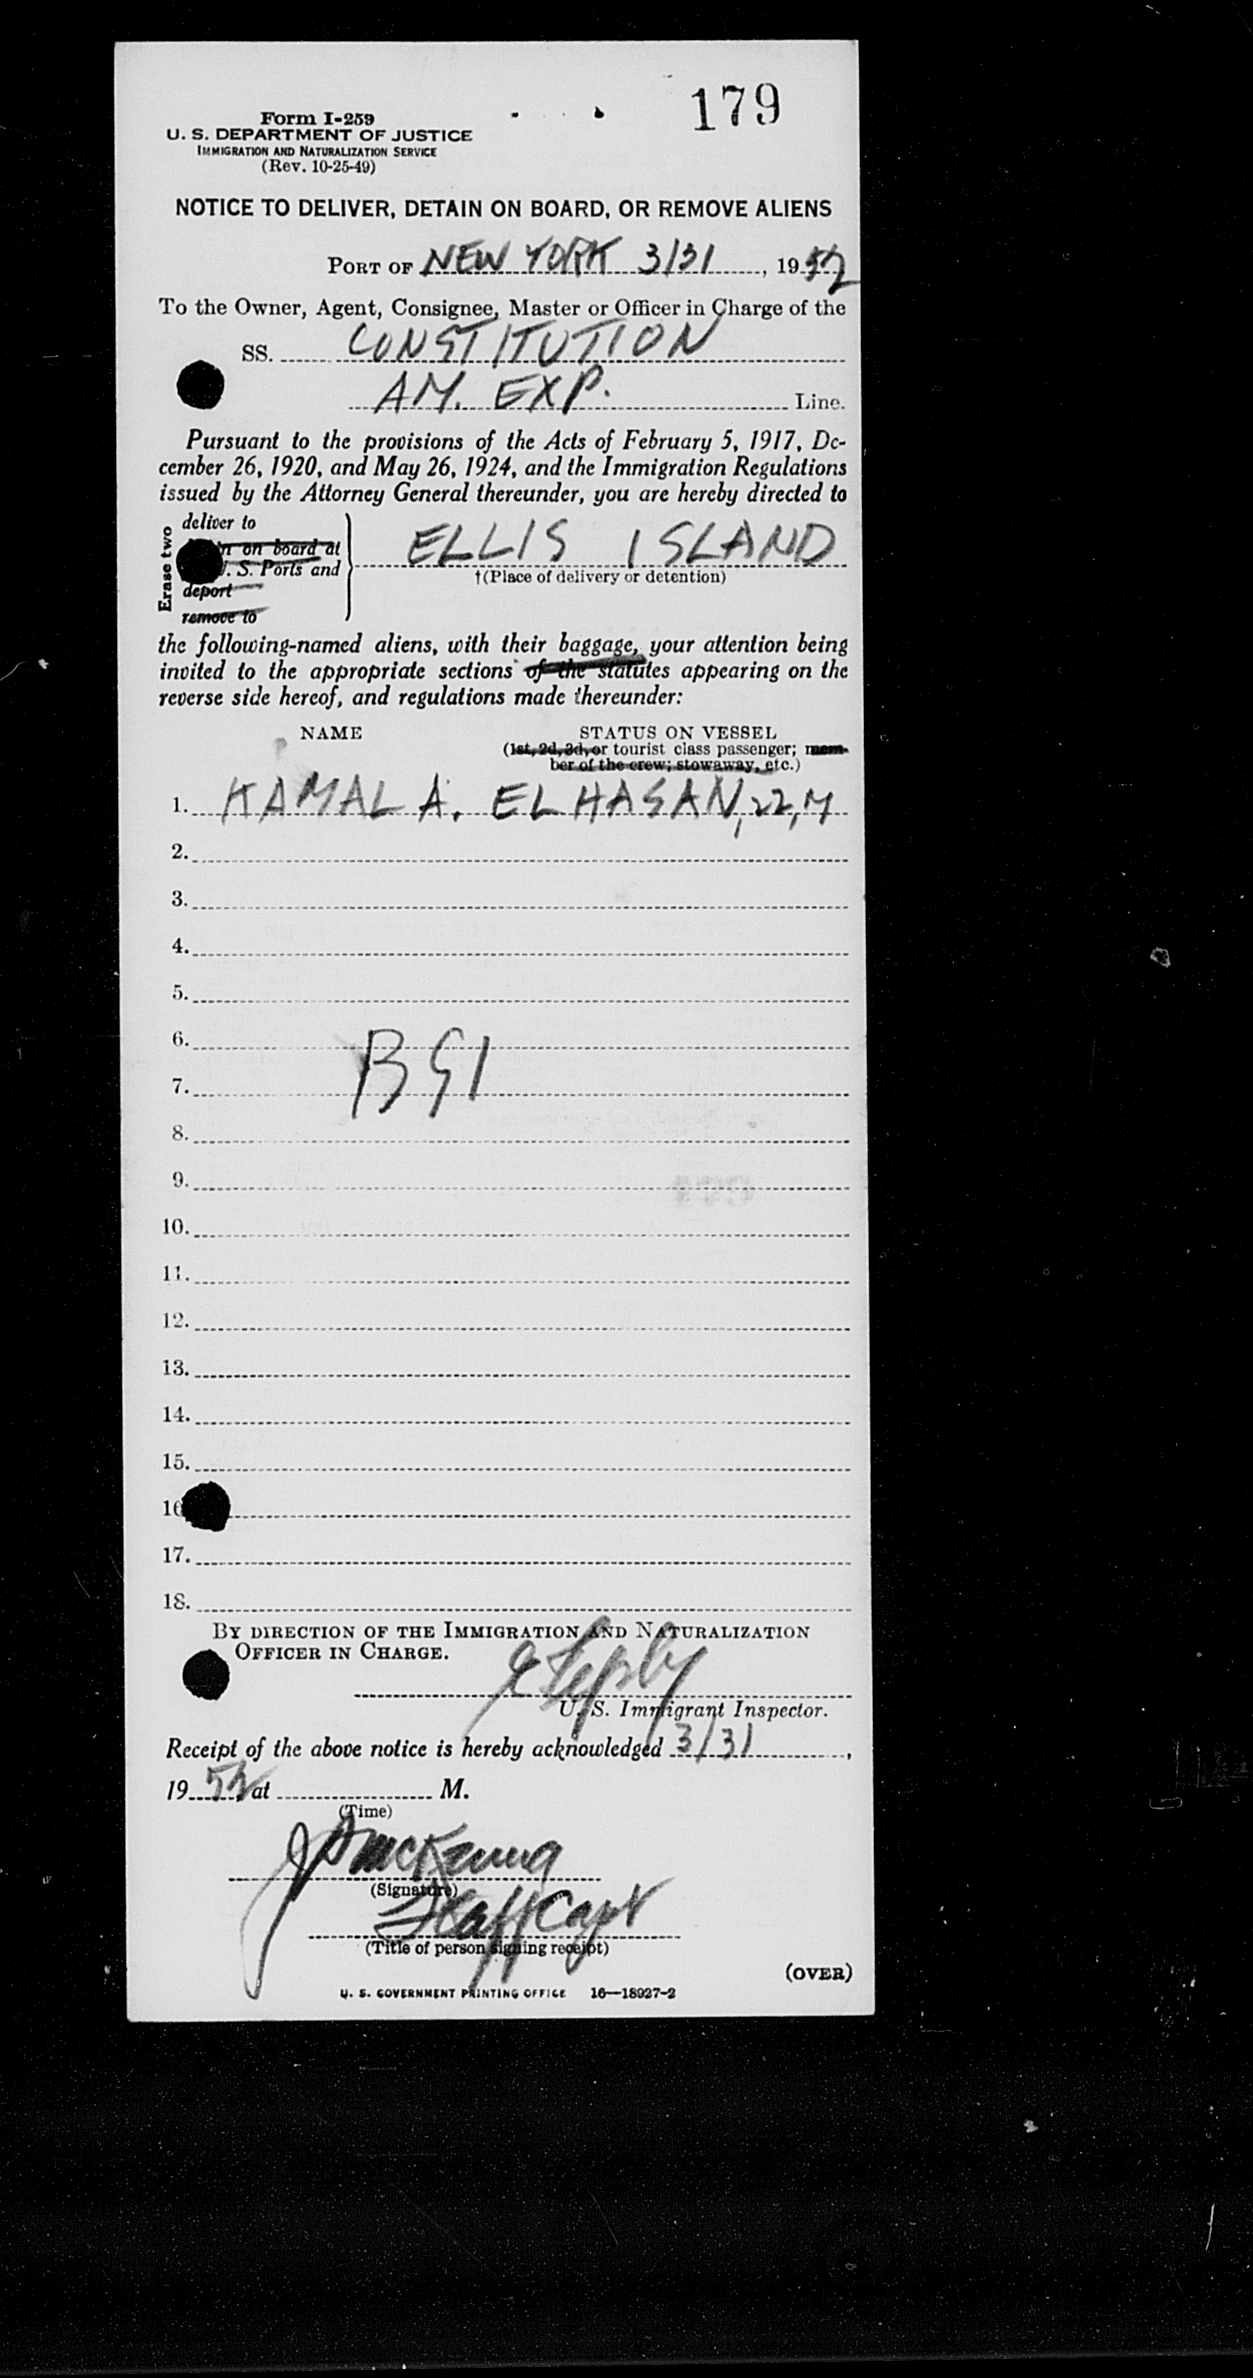 179
Form I-259
U. S. DEPARTMENT OF JUSTICE
IMMIGRATION AND NATURALIZATION SERVICE
(Rev. 10-25-49)
NOTICE TO DELIVER, DETAIN ON BOARD, OR REMOVE ALIENS
PORT OF NEW YORK 3/31, 1952
To the Owner, Agent, Consignee, Master or Officer in Charge of the
SS. CONSTITUTION
AM. EXP. Line.
Pursuant to the provisions of the Acts of February 5, 1917, De-
cember 26, 1920, and May 26, 1924, and the Immigration Regulations
issued by the Attorney General thereunder, you are hereby directed to
Erase two
deliver to
on board at
S. Ports and
deport
remove to
ELLIS ISLAND
†(Place of delivery or detention)
the following-named aliens, with their baggage, your attention being
invited to the appropriate sections of the statutes appearing on the
reverse side hereof, and regulations made thereunder:
NAME STATUS ON VESSEL
(1st, 2d, 3d, or tourist class passenger; mem-
ber of the crew; stowaway, etc.)
1. KAMAL A. EL HASAN, 22, M
2.
3.
4.
5.
6.
BSI
7.
8.
9.
10.
11.
12.
13.
14.
15.
16
17.
18.
BY DIRECTION OF THE IMMIGRATION AND NATURALIZATION
OFFICER IN CHARGE.
U. S. Immigrant Inspector.
Receipt of the above notice is hereby acknowledged 3/31,
1952 at M.
(Time)
McKenna
(Signature)
Staff Capt
(Title of person signing receipt)
(OVER)
U. S. GOVERNMENT PRINTING OFFICE 16—18927-2